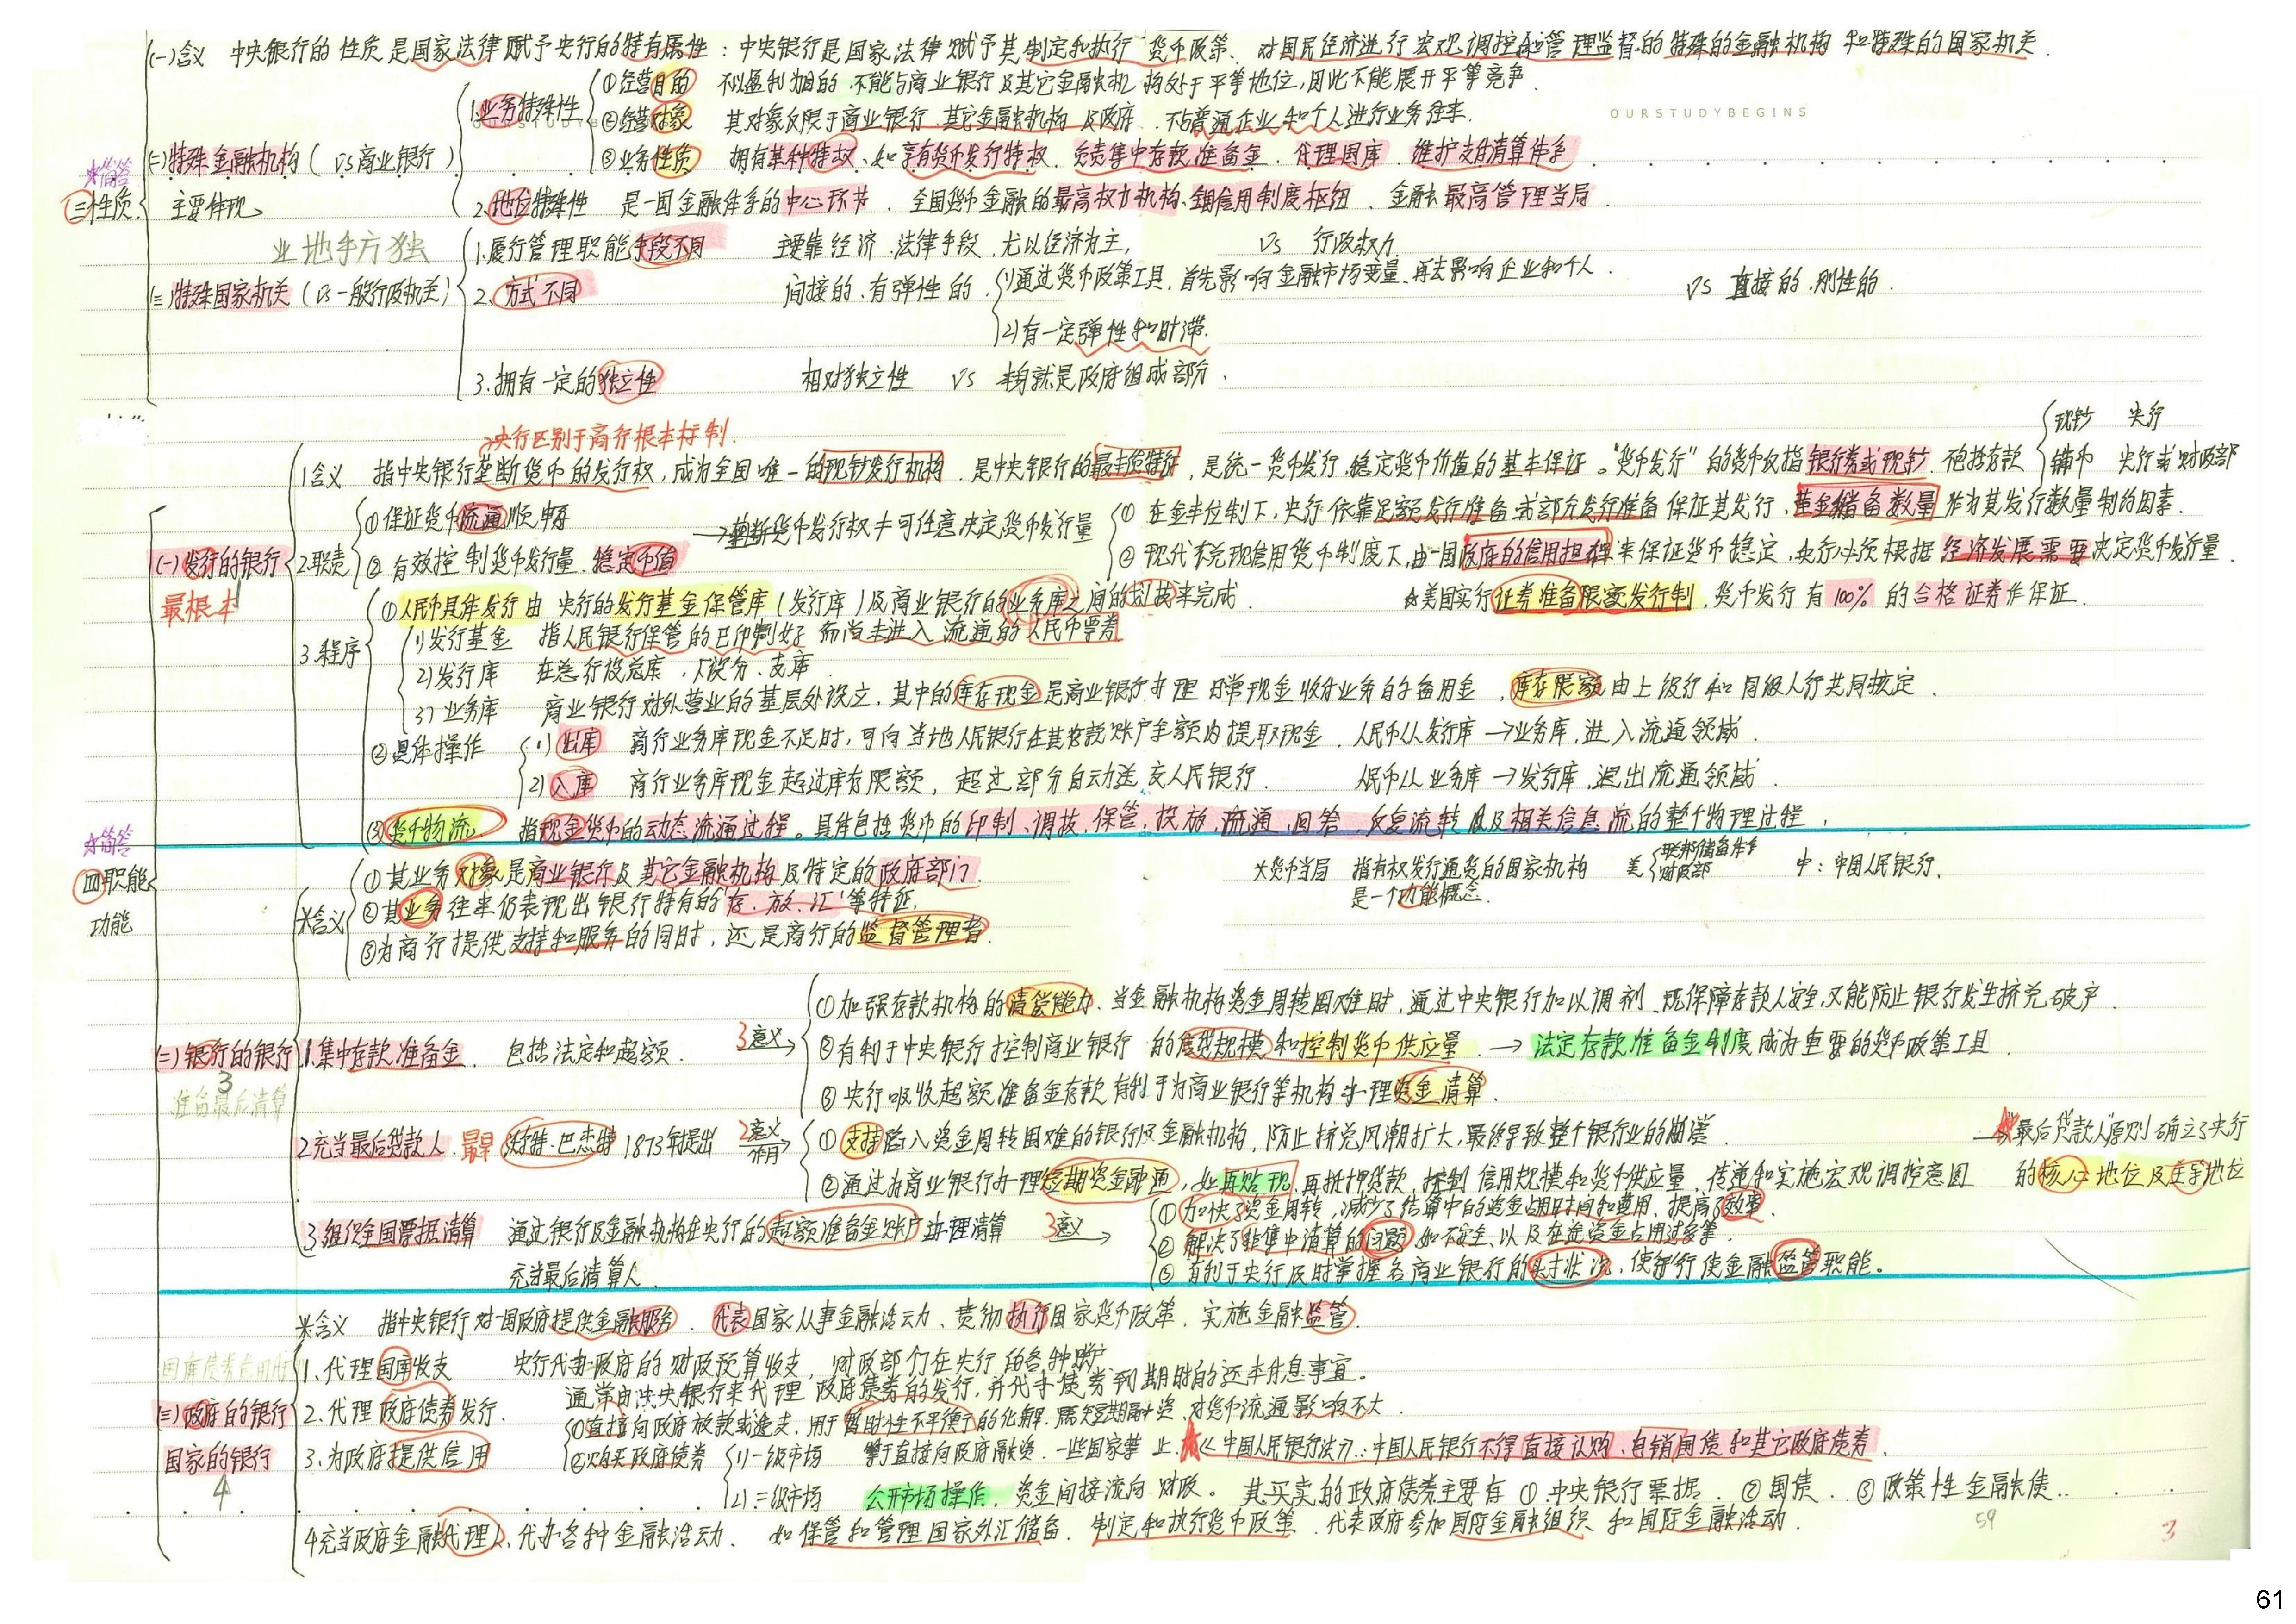 (一)含义 中央银行的性质是国家法律赋予央行的特有属性：中央银行是国家法律赋予其制定和执行货币政策、对国民经济进行宏观调控和管理监督的特殊的金融机构和特殊的国家机关.
1.业务特殊性 ①经营目的 不以盈利为目的 不能与商业银行及其它金融机构处于平等地位,因此不能展开平等竞争.
②经营对象 其对象仅限于商业银行、其它金融机构及政府.不与普通企业和个人进行业务往来.
OURSTUDYBEGINS
OURSTUDYBEGINS
③业务性质 拥有某种特权、如享有货币发行特权、负责集中存款准备金、代理国库、维护支付清算体系
☆简答
(三)性质 (二)特殊金融机构(vs商业银行)
主要体现
2.地位特殊性 是一国金融体系的中心环节、全国货币金融的最高权力机构、全国信用制度枢纽、金融最高管理当局.
业地手方独
(三)特殊国家机关(vs一般行政机关)
1.履行管理职能手段不同 主要靠经济、法律手段、尤以经济为主, vs 行政权力
2.方式不同 间接的、有弹性的 1)通过货币政策工具,首先影响金融市场变量,再去影响企业和个人. vs 直接的、刚性的.
2)有一定弹性和时滞.
3.拥有一定的独立性 相对独立性 vs 本身就是政府组成部分.
→央行区别于商行根本标制.
现钞 央行
辅币 央行或财政部
1含义 指中央银行垄断货币的发行权,成为全国唯一的现钞发行机构.是中央银行的最主要特征,是统一货币发行、稳定货币价值的基本保证。"货币发行"的货币仅指银行券或现钞、不包括存款
☆简答
(四)职能
功能
(一)发行的银行
最根本
2.职责 ①保证货币流通顺畅
②有效控制货币发行量、稳定币值
→垄断货币发行权≠可任意决定货币发行量
① 在金本位制下,央行依靠足额发行准备或部分发行准备保证其发行,黄金储备数量作为其发行数量制约因素.
② 现代不兑现信用货币制度下,由一国政府的信用担保来保证货币稳定,央行必须根据经济发展需要决定货币发行量.
☆美国实行证券准备限额发行制,货币发行有100%的合格证券作保证.
3.程序 ①人民币具体发行由央行的发行基金保管库(发行库)及商业银行的业务库之间的划拨来完成.
1)发行基金 指人民银行保管的已印制好而尚未进入流通的人民币票券
2)发行库 在总行设总库、下设分、支库.
3)业务库 商业银行对外营业的基层处设立,其中的库存现金是商业银行办理日常现金收付业务的备用金,库存限额由上级行和同级人行共同核定.
②具体操作 1)出库 商行业务库现金不足时,可向当地人民银行在其存款账户余额内提取现金.人民币从发行库→业务库,进入流通领域.
2)入库 商行业务库现金超过库存限额,超过部分自动送交人民银行. 人民币从业务库→发行库,退出流通领域.
③货币物流 指现金货币的动态流通过程。具体包括货币的印制、调拨、保管、投放、流通、回笼、反复流转以及相关信息流的整个物理过程.
※含义 ①其业务对象是商业银行及其它金融机构及特定的政府部门.
②其业务往来仍表现出银行特有的"存、放、汇"等特征.
③为商行提供支持和服务的同时,还是商行的监督管理者.
☆货币当局 指有权发行通货的国家机构 美 联邦储备体系 财政部 中:中国人民银行.
是一个功能概念.
(二)银行的银行
3
准备最后清算
1.集中存款准备金. 包括法定和超额. 3意义→
①加强存款机构的清偿能力、当金融机构资金周转困难时,通过中央银行加以调剂、既保障存款人安全,又能防止银行发生挤兑破产.
②有利于中央银行控制商业银行的信贷规模和控制货币供应量.→法定存款准备金制度成为重要的货币政策工具.
③央行吸收超额准备金存款有利于为商业银行等机构办理资金清算.
2充当最后贷款人.最早 沃特·巴杰特 1873年提出 2意义 作用→
①支持陷入资金周转困难的银行及金融机构,防止挤兑风潮扩大,最终导致整个银行业的崩溃.
②通过为商业银行办理短期资金融通,如再贴现、再抵押贷款、控制信用规模和货币供应量、传递和实施宏观调控意图
☆"最后贷款人"原则确立了央行
的核心地位及主导地位
3.组织全国票据清算 通过银行及金融机构在央行的超额准备金账户办理清算 3意义→
充当最后清算人.
①加快了资金周转,减少了结算中的资金占用时间和费用、提高了效率.
②解决了非集中清算的问题 如不安全、以及在途资金占用过多等.
③有利于央行及时掌握各商业银行的头寸状况、便于行使金融监管职能。
※含义 指中央银行对一国政府提供金融服务、代表国家从事金融活动、贯彻执行国家货币政策、实施金融监管.
(三)政府的银行
国家的银行
4
1.代理国库收支 央行代办政府的财政预算收支,财政部们在央行的各种账户
2.代理政府债券发行. 通常由中央银行来代理政府债券的发行,并代办债券到期时的还本付息事宜。
3.为政府提供信用 ①直接向政府放款或透支、用于暂时性不平衡的化解.属短期融资、对货币流通影响不大.
②购买政府债券 1)一级市场 等于直接向政府融资、一些国家禁止. ☆《中国人民银行法》:中国人民银行不得直接认购、包销国债和其它政府债券.
2)二级市场 公开市场操作,资金间接流向财政。其买卖的政府债券主要有 ①中央银行票据. ②国债. ③政策性金融债.
4充当政府金融代理人、代办各种金融活动、如保管和管理国家外汇储备、制定和执行货币政策、代表政府参加国际金融组织和国际金融活动.
59
3
61